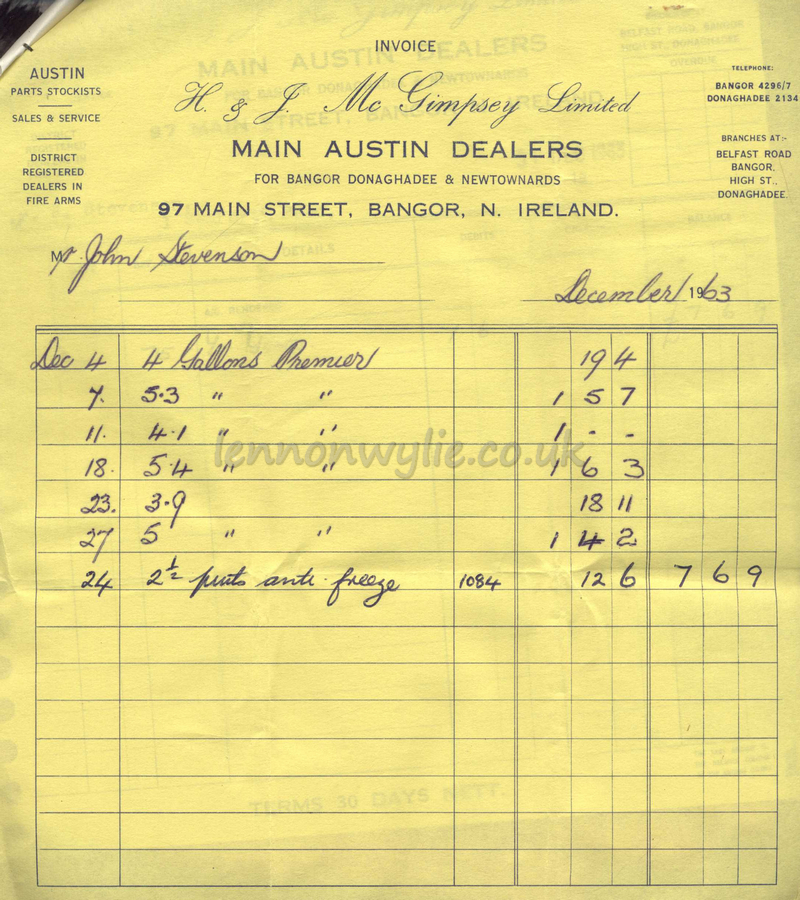 INVOICE
AUSTIN
PARTS STOCKISTS
SALES & SERVICE
DISTRICT
REGISTERED
DEALERS IN
FIRE ARMS
H. & J. Mc Gimpsey Limited
MAIN AUSTIN DEALERS
FOR BANGOR DONAGHADEE & NEWTOWNARDS
97 MAIN STREET, BANGOR, N. IRELAND.
TELEPHONE:
BANGOR 4296/7
DONAGHADEE 2134
BRANCHES AT:-
BELFAST ROAD
BANGOR.
HIGH ST.,
DONAGHADEE.
Mr. John Stevenson
December 1963
Dec 4 4 Gallons Premier 19 4
7. 5.3 " " 1 5 7
11. 4.1 " " 1 - -
18. 5.4 " " 1 6 3
23. 3.9 18 11
27 5 " " 1 4 2
24 2½ pints anti freeze 1084 12 6 7 6 9
lennonwylie.co.uk
TERMS 30 DAYS NETT.